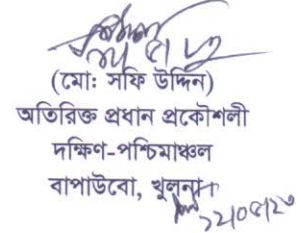 (মো: সফি উদ্দিন)
অতিরিক্ত প্রধান প্রকৌশলী
দক্ষিণ-পশ্চিমাঞ্চল
বাপাউবো, খুলনা।